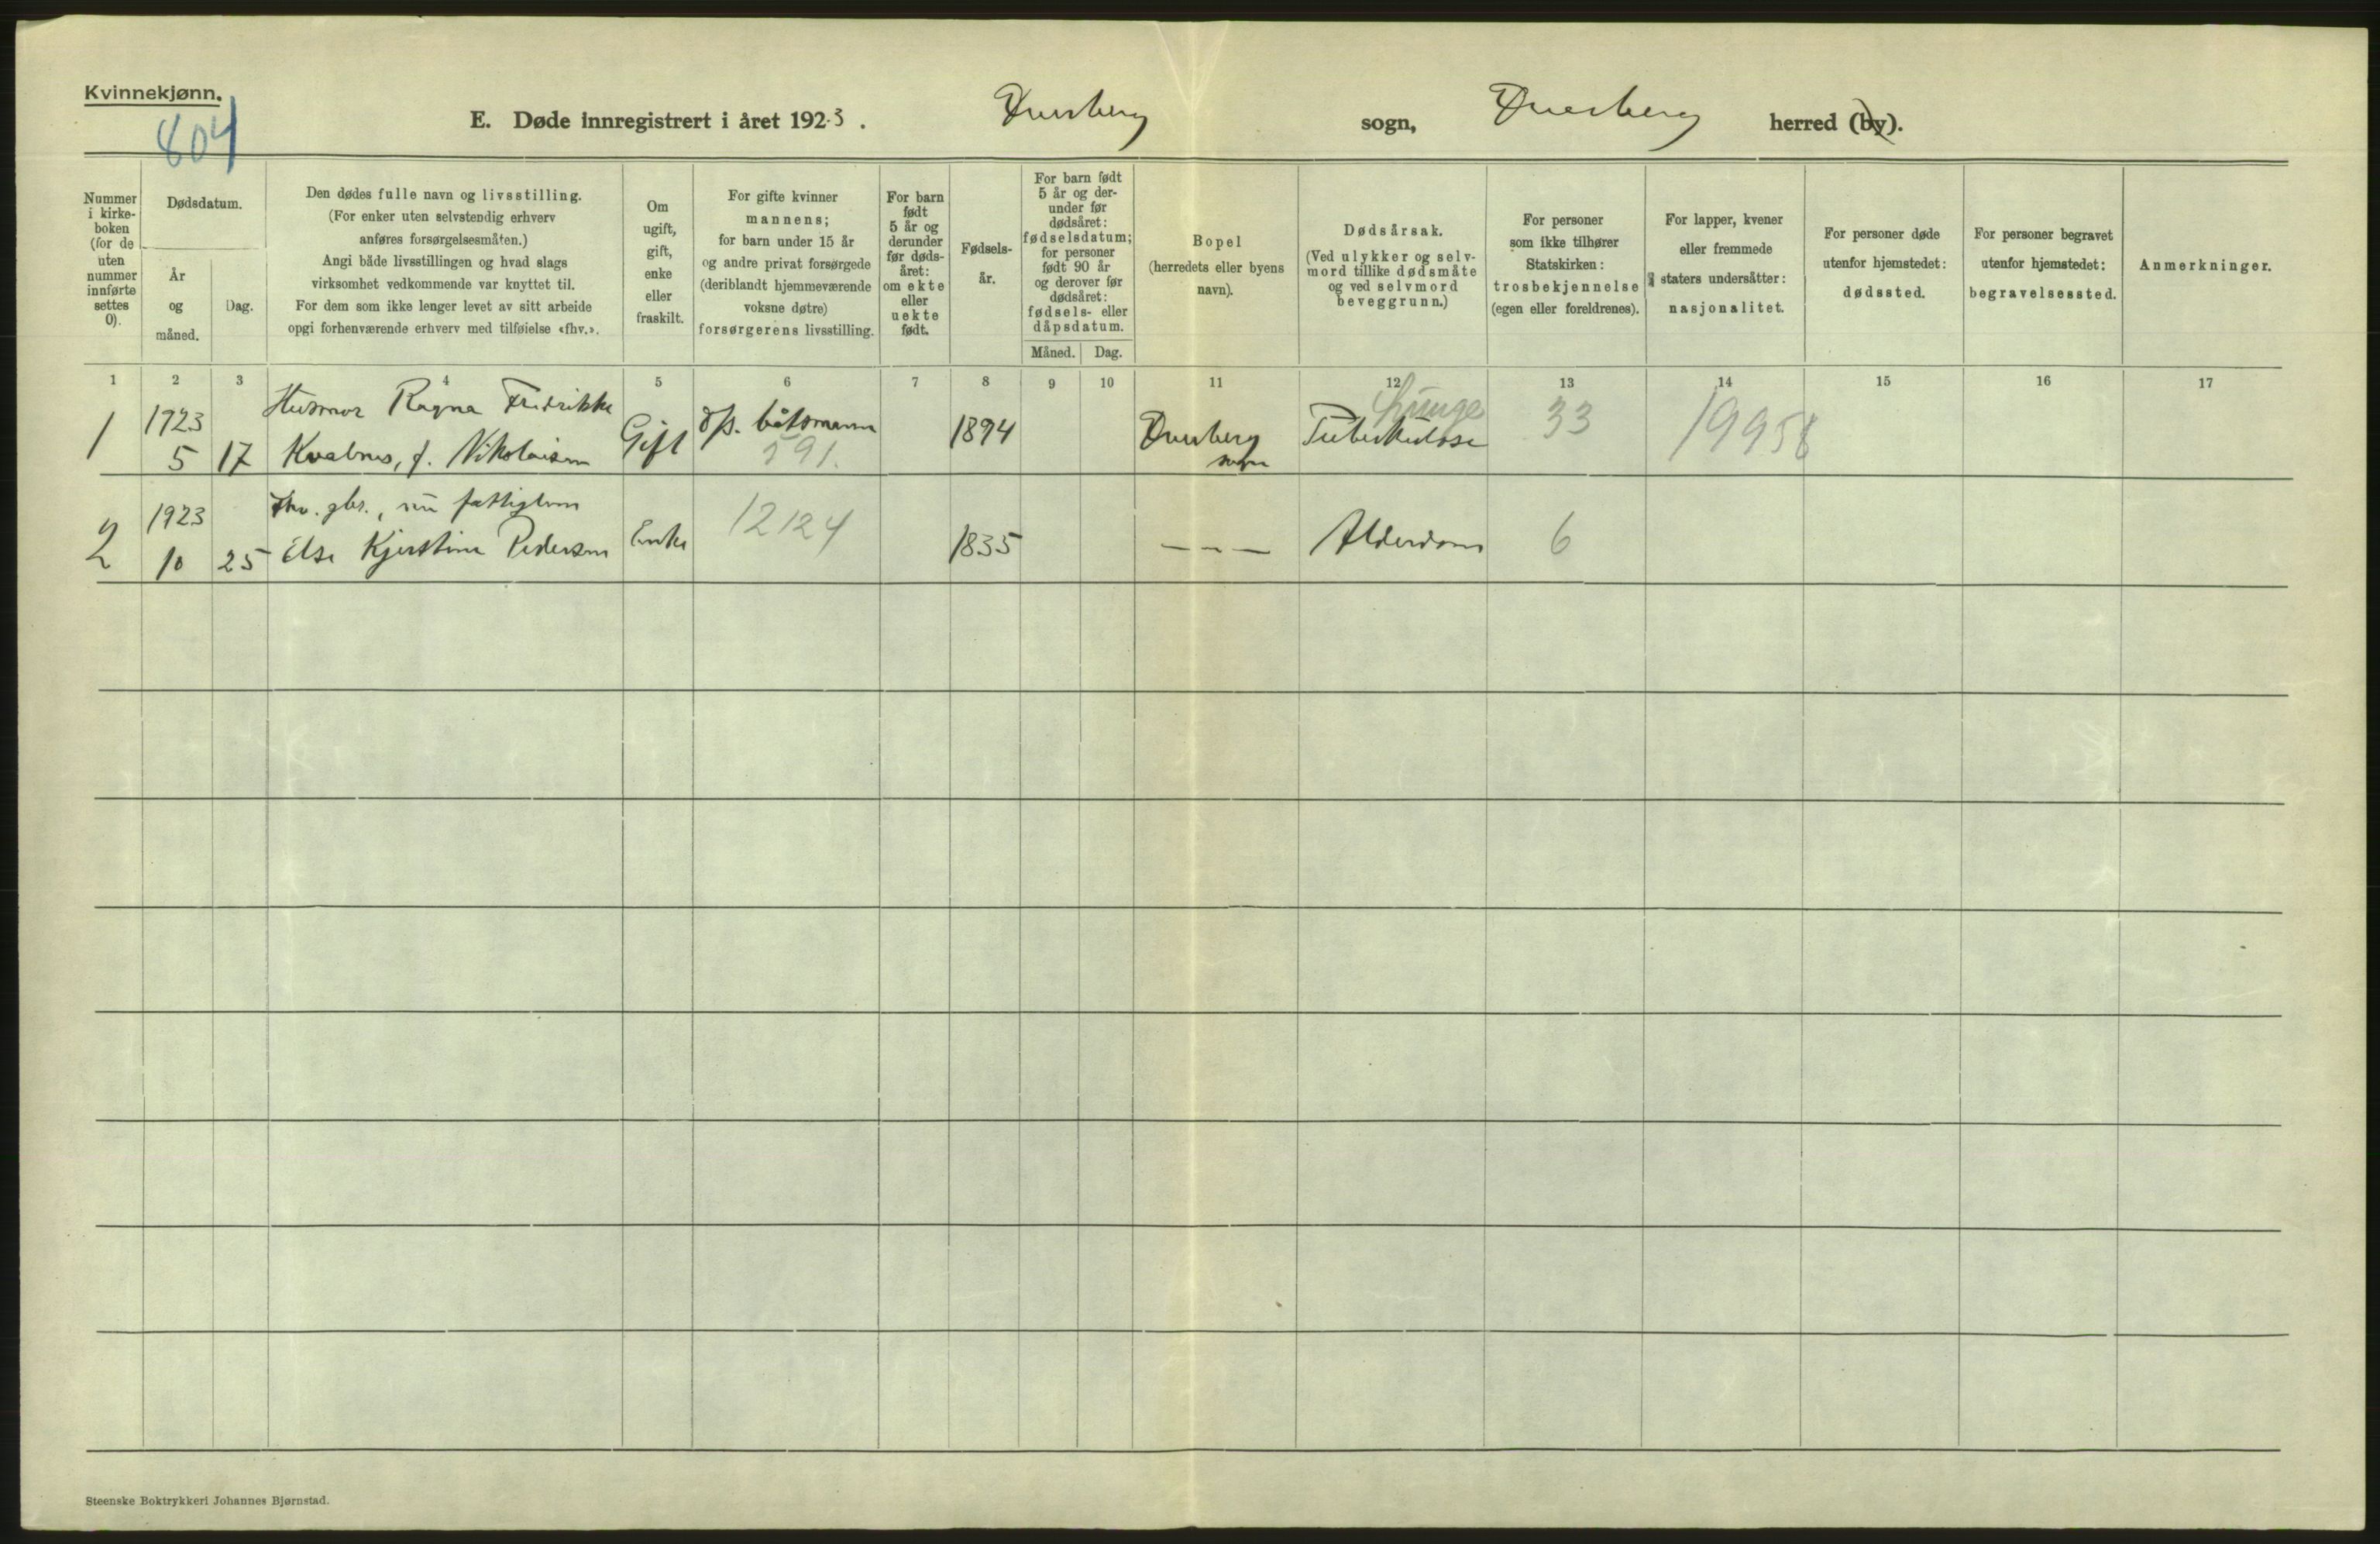 Kvinnekjønn.
804
E. Døde innregistrert i året 1923. Dverberg sogn, Dverberg herred (by).
Nummer i kirke- boken (for de uten nummer innførte settes 0).
Dødsdatum.
År og måned.
Dag.
Den dødes fulle navn og livsstilling.
(For enker uten selvstendig erhverv
anføres forsørgelsesmåten.)
Angi både livsstillingen og hvad slags
virksomhet vedkommende var knyttet til.
For dem som ikke lenger levet av sitt arbeide
opgi forhenværende erhverv med tilføielse «fhv.».
Om
ugift,
gift,
enke
eller
fraskilt.
For gifte kvinner
mannens;
for barn under 15 år
og andre privat forsørgede
(deriblandt hjemmeværende
voksne døtre)
forsørgerens livsstilling.
For barn
født
5 år og
derunder
før døds-
året:
om ekte
eller
uekte
født.
Fødsels-
år.
For barn født
5 år og der-
under før
dødsåret:
fødselsdatum;
for personer
født 90 år
og derover før
dødsåret:
fødsels- eller
dåpsdatum.
Måned. Dag.
Bopel
(herredets eller byens
navn).
Dødsårsak.
(Ved ulykker og selv-
mord tillike dødsmåte
og ved selvmord
beveggrunn.)
For personer
som ikke tilhører
Statskirken:
trosbekjennelse
(egen eller foreldrenes).
For lapper, kvener
eller fremmede
staters undersåtter:
nasjonalitet.
For personer døde
utenfor hjemstedet:
dødssted.
For personer begravet
utenfor hjemstedet:
begravelsessted.
Anmerkninger.
1 2 3 4 5 6 7 8 9 10 11 12 13 14 15 16 17
1 1923 5 17
Husmor Ragna Fredrikke
Kvalnes, f. Nikolaisen
Gift
d/s. båtsmann
591.
1894
Dverberg
sogn
Lunge
Tuberkulose
33
19958
2 1923 10 25
Fhv. gbr., nu fattiglem
Else Kjerstine Pedersen
Enke
12124
1835
- - -
Alderdom
6
Steenske Boktrykkeri Johannes Bjørnstad.